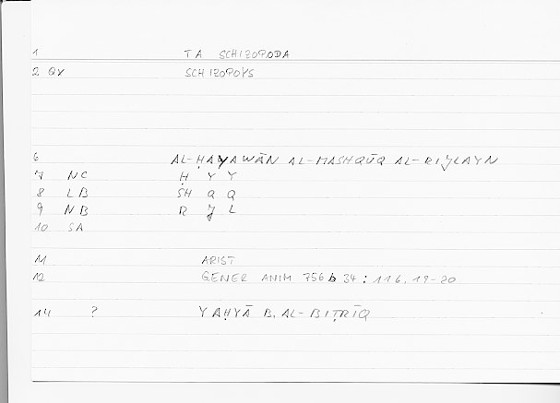 1 TA SCHIZOPODA
2 QV SCHIZOPOYS
6 AL-ḤAYAWĀN AL-MASHQŪQ AL-RIJLAYN
7 NC Ḥ Y Y
8 LB SH Q Q
9 NB R J L
10 SA
11 ARIST
12 GENER ANIM 756b34 : 116.19-20
14 ? YAḤYĀ B. AL-BIṬRĪQ